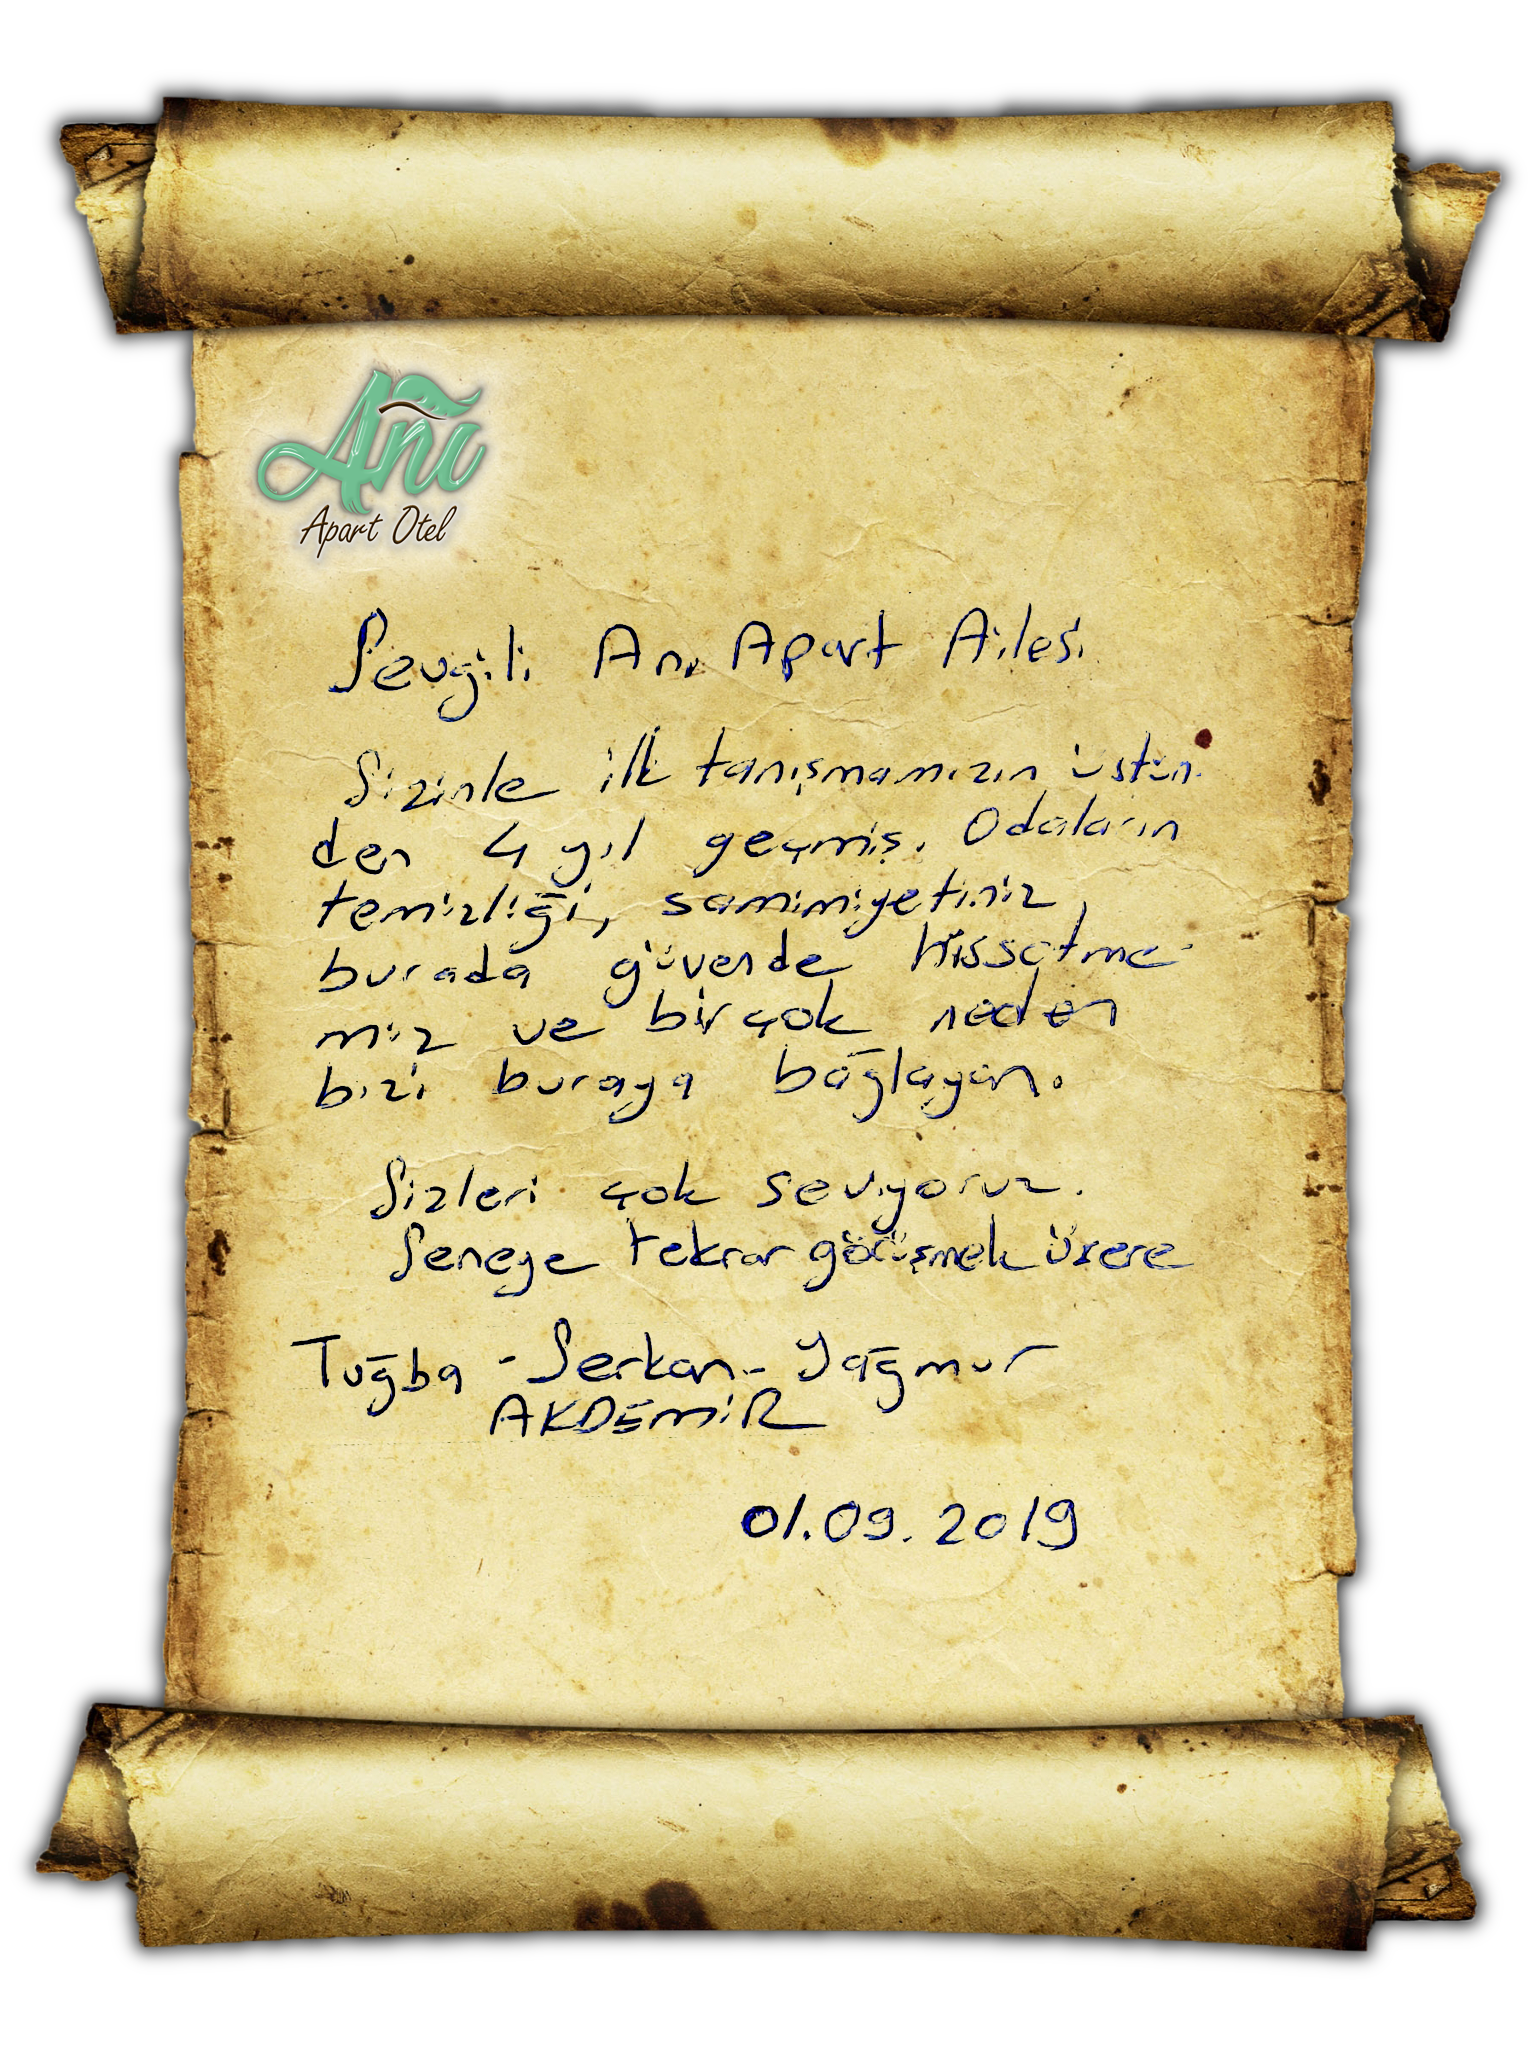 Anı
Apart Otel
Sevgili Anı Apart Ailesi
Sizinle ilk tanışmamızın üstün-
den 4 yıl geçmiş. Odaların
temizliği, samimiyetiniz,
burada güvende hissetme-
miz ve birçok neden
bizi buraya bağlayan.
Sizleri çok seviyoruz.
Seneye tekrar görüşmek üzere
Tuğba - Serkan - Yağmur
AKDEMİR
01.09.2019